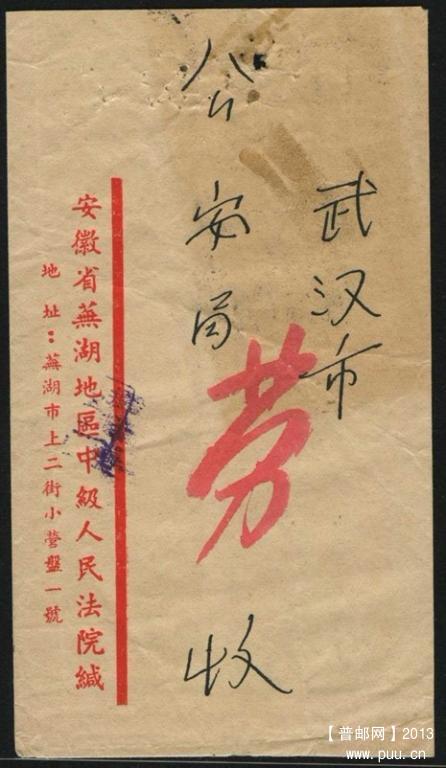 武汉市
公安局
收
劳
安徽省蕪湖地區中級人民法院緘
地址：蕪湖市上二街小營盤一號
【普邮网】2013
www.puu.cn